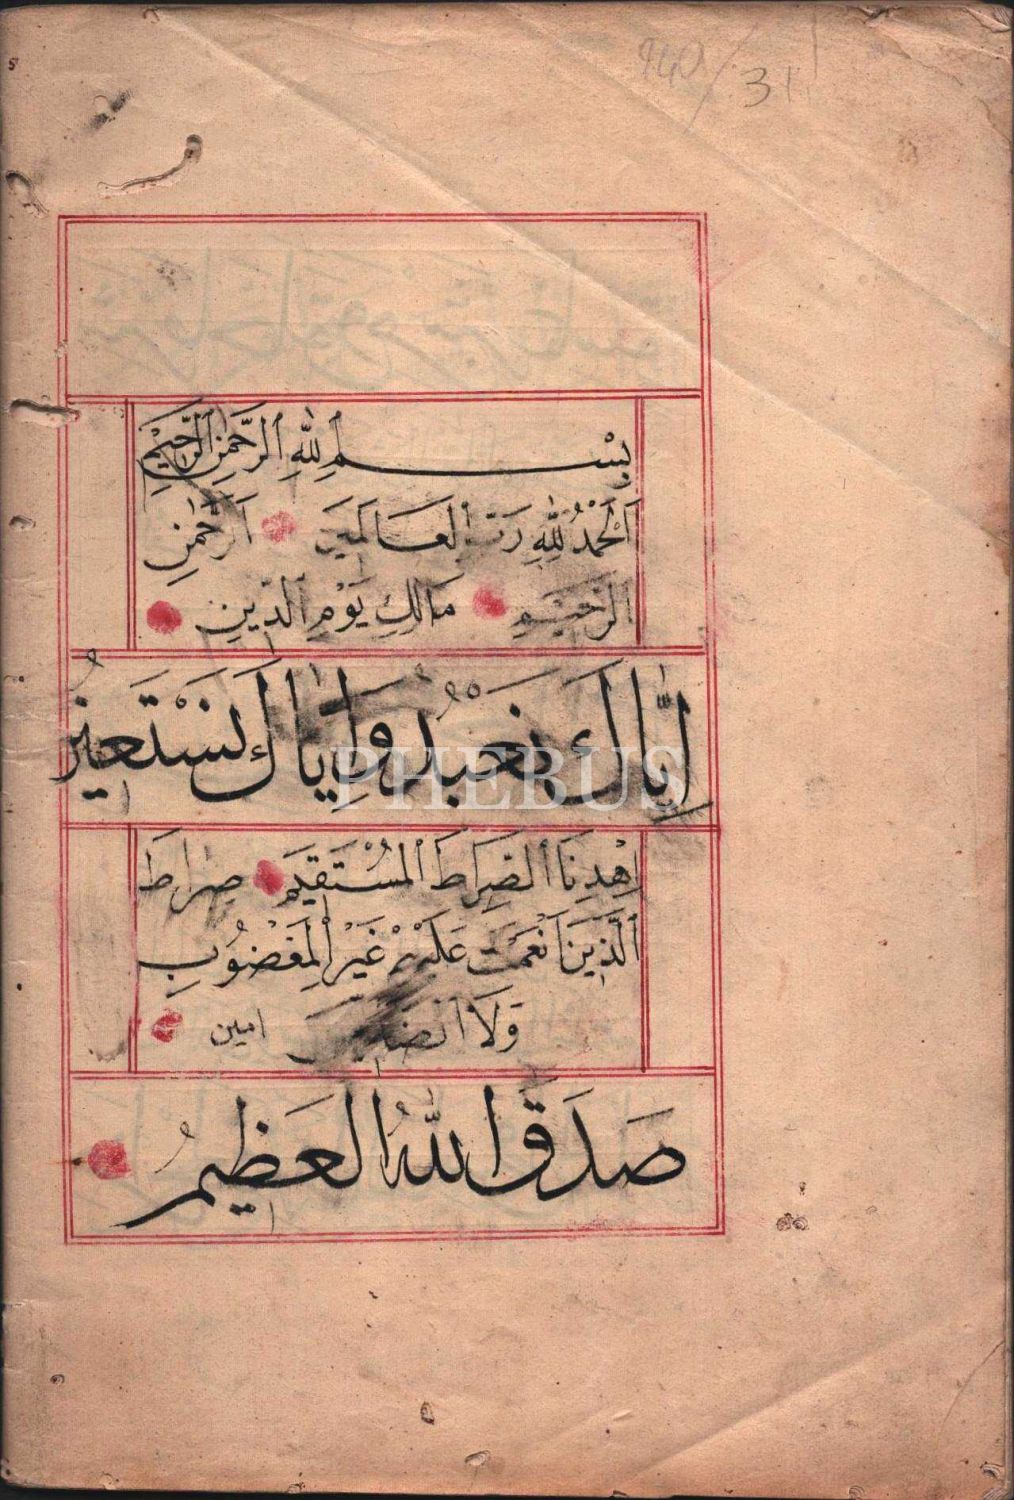 31
بِسْمِ ٱللّٰهِ ٱلرَّحْمٰنِ ٱلرَّحِيْمِ
اَلْحَمْدُ لِلّٰهِ رَبِّ ٱلعَالَمِيَن اَلرَّحْمٰنِ
ٱلرَّحِيْمِ مَالِكِ يَوْمِ ٱلدِّينِ
اِيَّاكَ نَعْبُدُ وَاِيَاكَ نَسْتَعِينُ
اِهْدِنَا ٱلصِّرَاطَ ٱلمُسْتَقِيمَ صِرَاطَ
ٱلَّذِينَ اَنْعَمْتَ عَلَيْهِمْ غَيْرِ ٱلْمَغْضُوبِ
وَلَا الضَالِينَ امين
صَدَقَ اللّٰهُ العَظِيمُ
PHEBUS